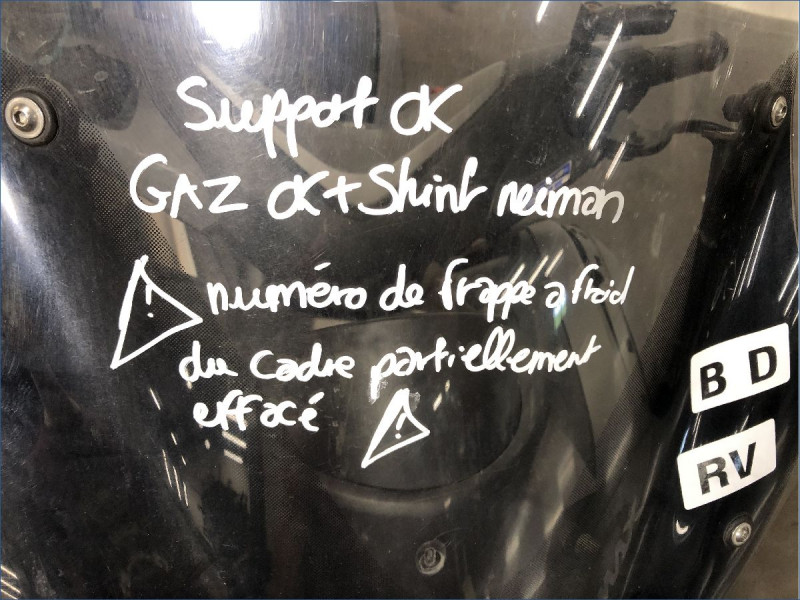 Support OK
GAZ OK + Shint neiman
! numéro de frappe a froid
du cadre partiellement
effacé !
B D
RV